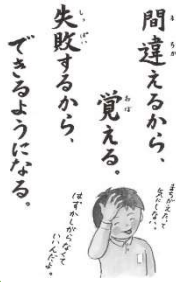 間違えるから、
覚える。
失敗するから、
できるようになる。
まちがえたって
気にしない。
はずかしがらなくて
いいんだよ。